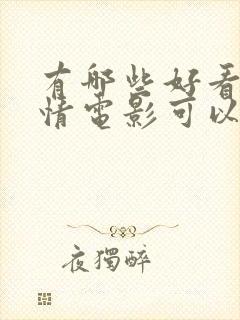 有哪些好看
情电影可以
夜獨醉